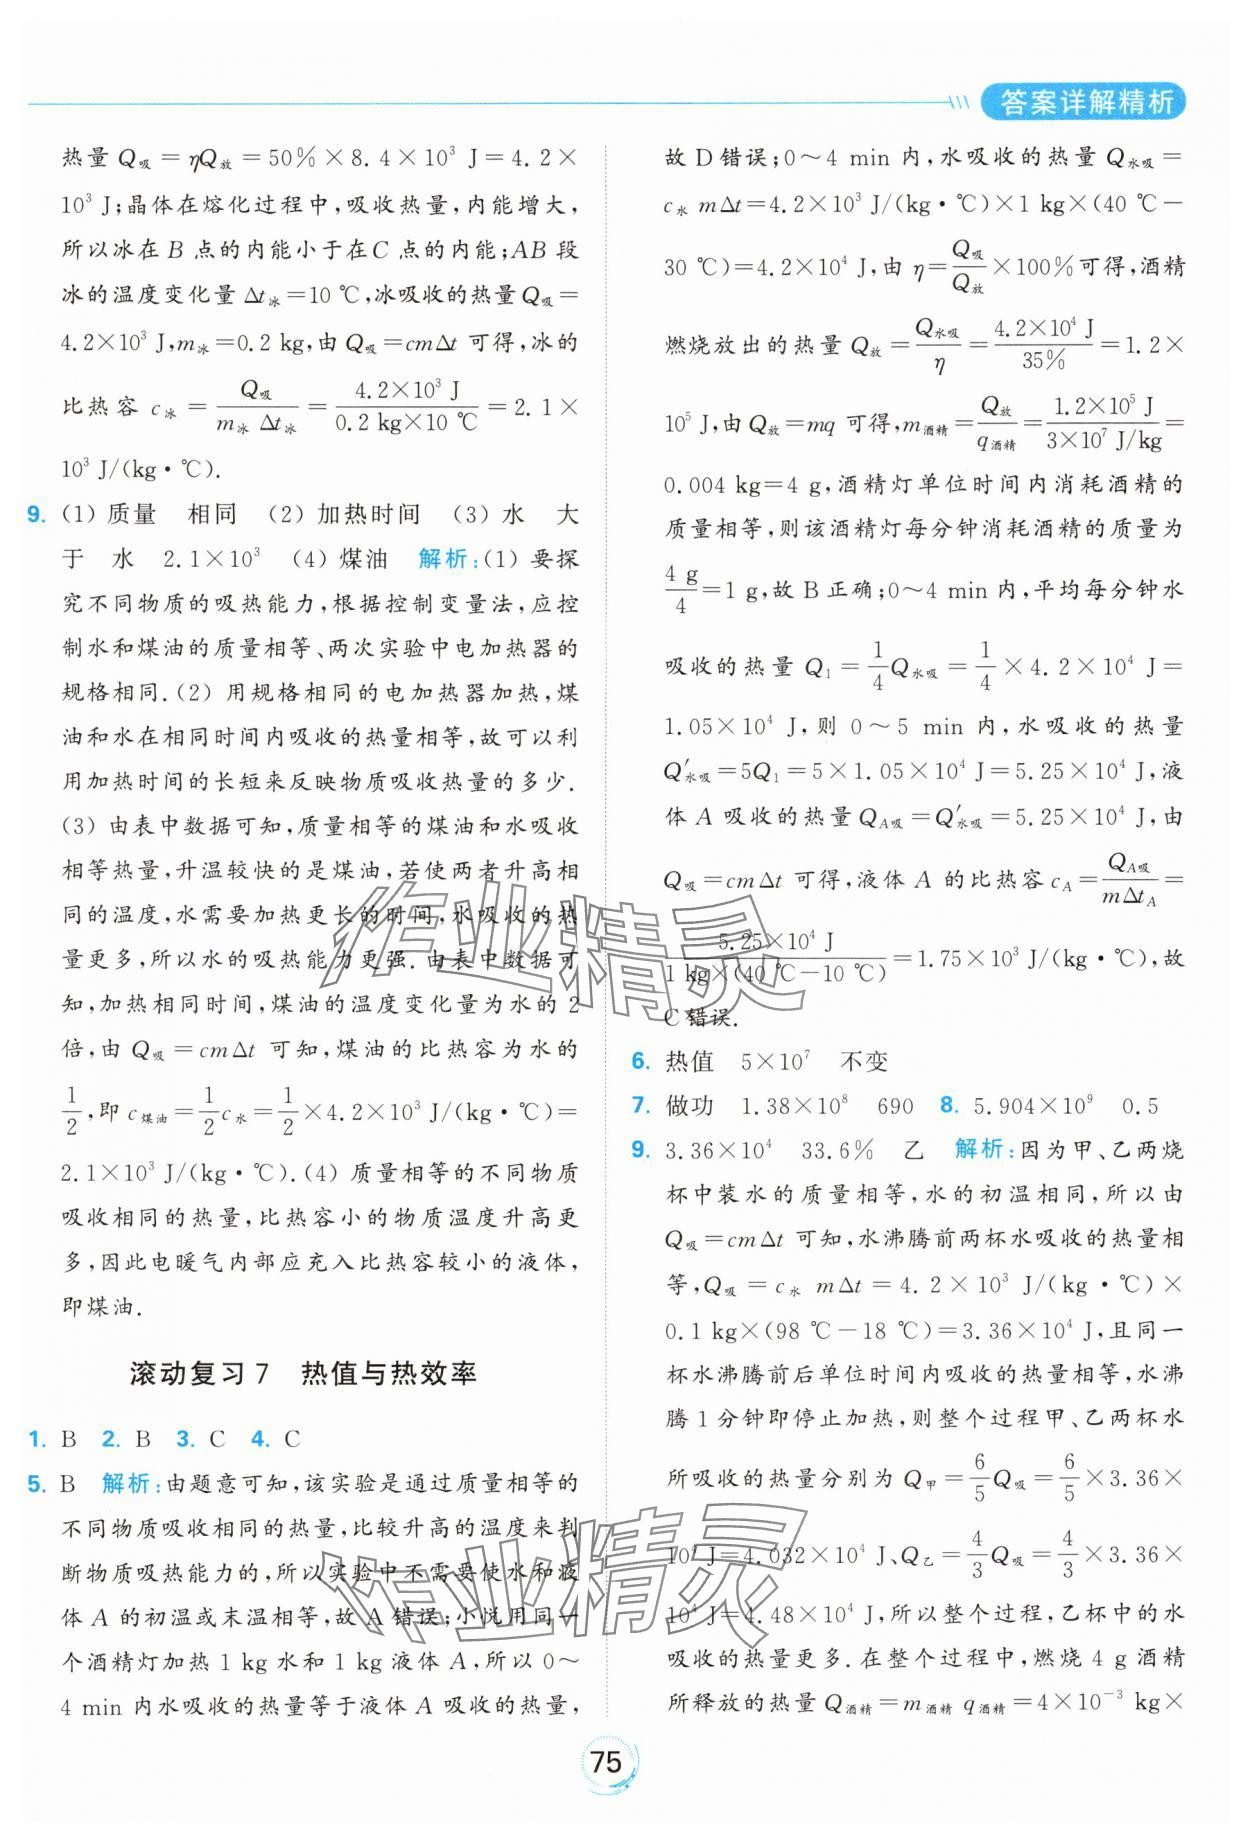 答案详解精析
热量 Q吸 = ηQ放 = 50% × 8.4 × 10³ J = 4.2 ×
10³ J;晶体在熔化过程中,吸收热量,内能增大,
所以冰在 B 点的内能小于在 C 点的内能;AB 段
冰的温度变化量 Δt冰=10 ℃,冰吸收的热量 Q吸=
4.2×10³ J,m冰=0.2 kg,由 Q吸=cmΔt 可得,冰的
比热容 c冰 = Q吸/(m冰 Δt冰) = 4.2×10³ J/(0.2 kg×10 ℃) = 2.1 ×
10³ J/(kg·℃).
9. (1) 质量 相同 (2) 加热时间 (3) 水 大
于 水 2.1×10³ (4) 煤油 解析:(1) 要探
究不同物质的吸热能力,根据控制变量法,应控
制水和煤油的质量相等、两次实验中电加热器的
规格相同.(2) 用规格相同的电加热器加热,煤
油和水在相同时间内吸收的热量相等,故可以利
用加热时间的长短来反映物质吸收热量的多少.
(3) 由表中数据可知,质量相等的煤油和水吸收
相等热量,升温较快的是煤油,若使两者升高相
同的温度,水需要加热更长的时间,水吸收的热
量更多,所以水的吸热能力更强.由表中数据可
知,加热相同时间,煤油的温度变化量为水的 2
倍,由 Q吸 = cmΔt 可知,煤油的比热容为水的
1/2,即 c煤油=1/2c水=1/2×4.2×10³ J/(kg·℃)=
2.1×10³ J/(kg·℃).(4) 质量相等的不同物质
吸收相同的热量,比热容小的物质温度升高更
多,因此电暖气内部应充入比热容较小的液体,
即煤油.
滚动复习 7 热值与热效率
1. B 2. B 3. C 4. C
5. B 解析:由题意可知,该实验是通过质量相等的
不同物质吸收相同的热量,比较升高的温度来判
断物质吸热能力的,所以实验中不需要使水和液
体 A 的初温或末温相等,故 A 错误;小悦用同一
个酒精灯加热 1 kg 水和 1 kg 液体 A,所以 0~
4 min 内水吸收的热量等于液体 A 吸收的热量,
故 D 错误;0~4 min 内,水吸收的热量 Q水吸=
c水 mΔt=4.2×10³ J/(kg·℃)×1 kg×(40 ℃-
30 ℃)=4.2×10⁴ J,由 η=Q吸/Q放×100%可得,酒精
燃烧放出的热量 Q放 = Q水吸/η = 4.2×10⁴ J/35% = 1.2 ×
10⁵ J,由 Q放=mq 可得,m酒精=Q放/q酒精=1.2×10⁵ J/(3×10⁷ J/kg)=
0.004 kg=4 g,酒精灯单位时间内消耗酒精的
质量相等,则该酒精灯每分钟消耗酒精的质量为
4 g/4=1 g,故 B 正确;0~4 min 内,平均每分钟水
吸收的热量 Q₁ = 1/4Q水吸 = 1/4 × 4.2 × 10⁴ J =
1.05×10⁴ J,则 0~5 min 内,水吸收的热量
Q′水吸=5Q₁=5×1.05×10⁴ J=5.25×10⁴ J,液
体 A 吸收的热量 QA吸=Q′水吸=5.25×10⁴ J,由
Q吸=cmΔt 可得,液体 A 的比热容 cA=QA吸/(mΔtA)=
5.25×10⁴ J/(1 kg×(40 ℃-10 ℃))=1.75×10³ J/(kg·℃),故
C 错误.
6. 热值 5×10⁷ 不变
7. 做功 1.38×10⁸ 690 8. 5.904×10⁹ 0.5
9. 3.36×10⁴ 33.6% 乙 解析:因为甲、乙两烧
杯中装水的质量相等,水的初温相同,所以由
Q吸=cmΔt 可知,水沸腾前两杯水吸收的热量相
等,Q吸 = c水 mΔt = 4.2 × 10³ J/(kg·℃) ×
0.1 kg×(98 ℃-18 ℃)=3.36×10⁴ J,且同一
杯水沸腾前后单位时间内吸收的热量相等,水沸
腾 1 分钟即停止加热,则整个过程甲、乙两杯水
所吸收的热量分别为 Q甲 = 6/5Q吸 = 6/5 × 3.36 ×
10⁴ J=4.032×10⁴ J、Q乙=4/3Q吸=4/3×3.36×
10⁴ J=4.48×10⁴ J,所以整个过程,乙杯中的水
吸收的热量更多.在整个过程中,燃烧 4 g 酒精
所释放的热量 Q酒精=m酒精 q酒精=4×10⁻³ kg×
75
作业精灵
作业精灵